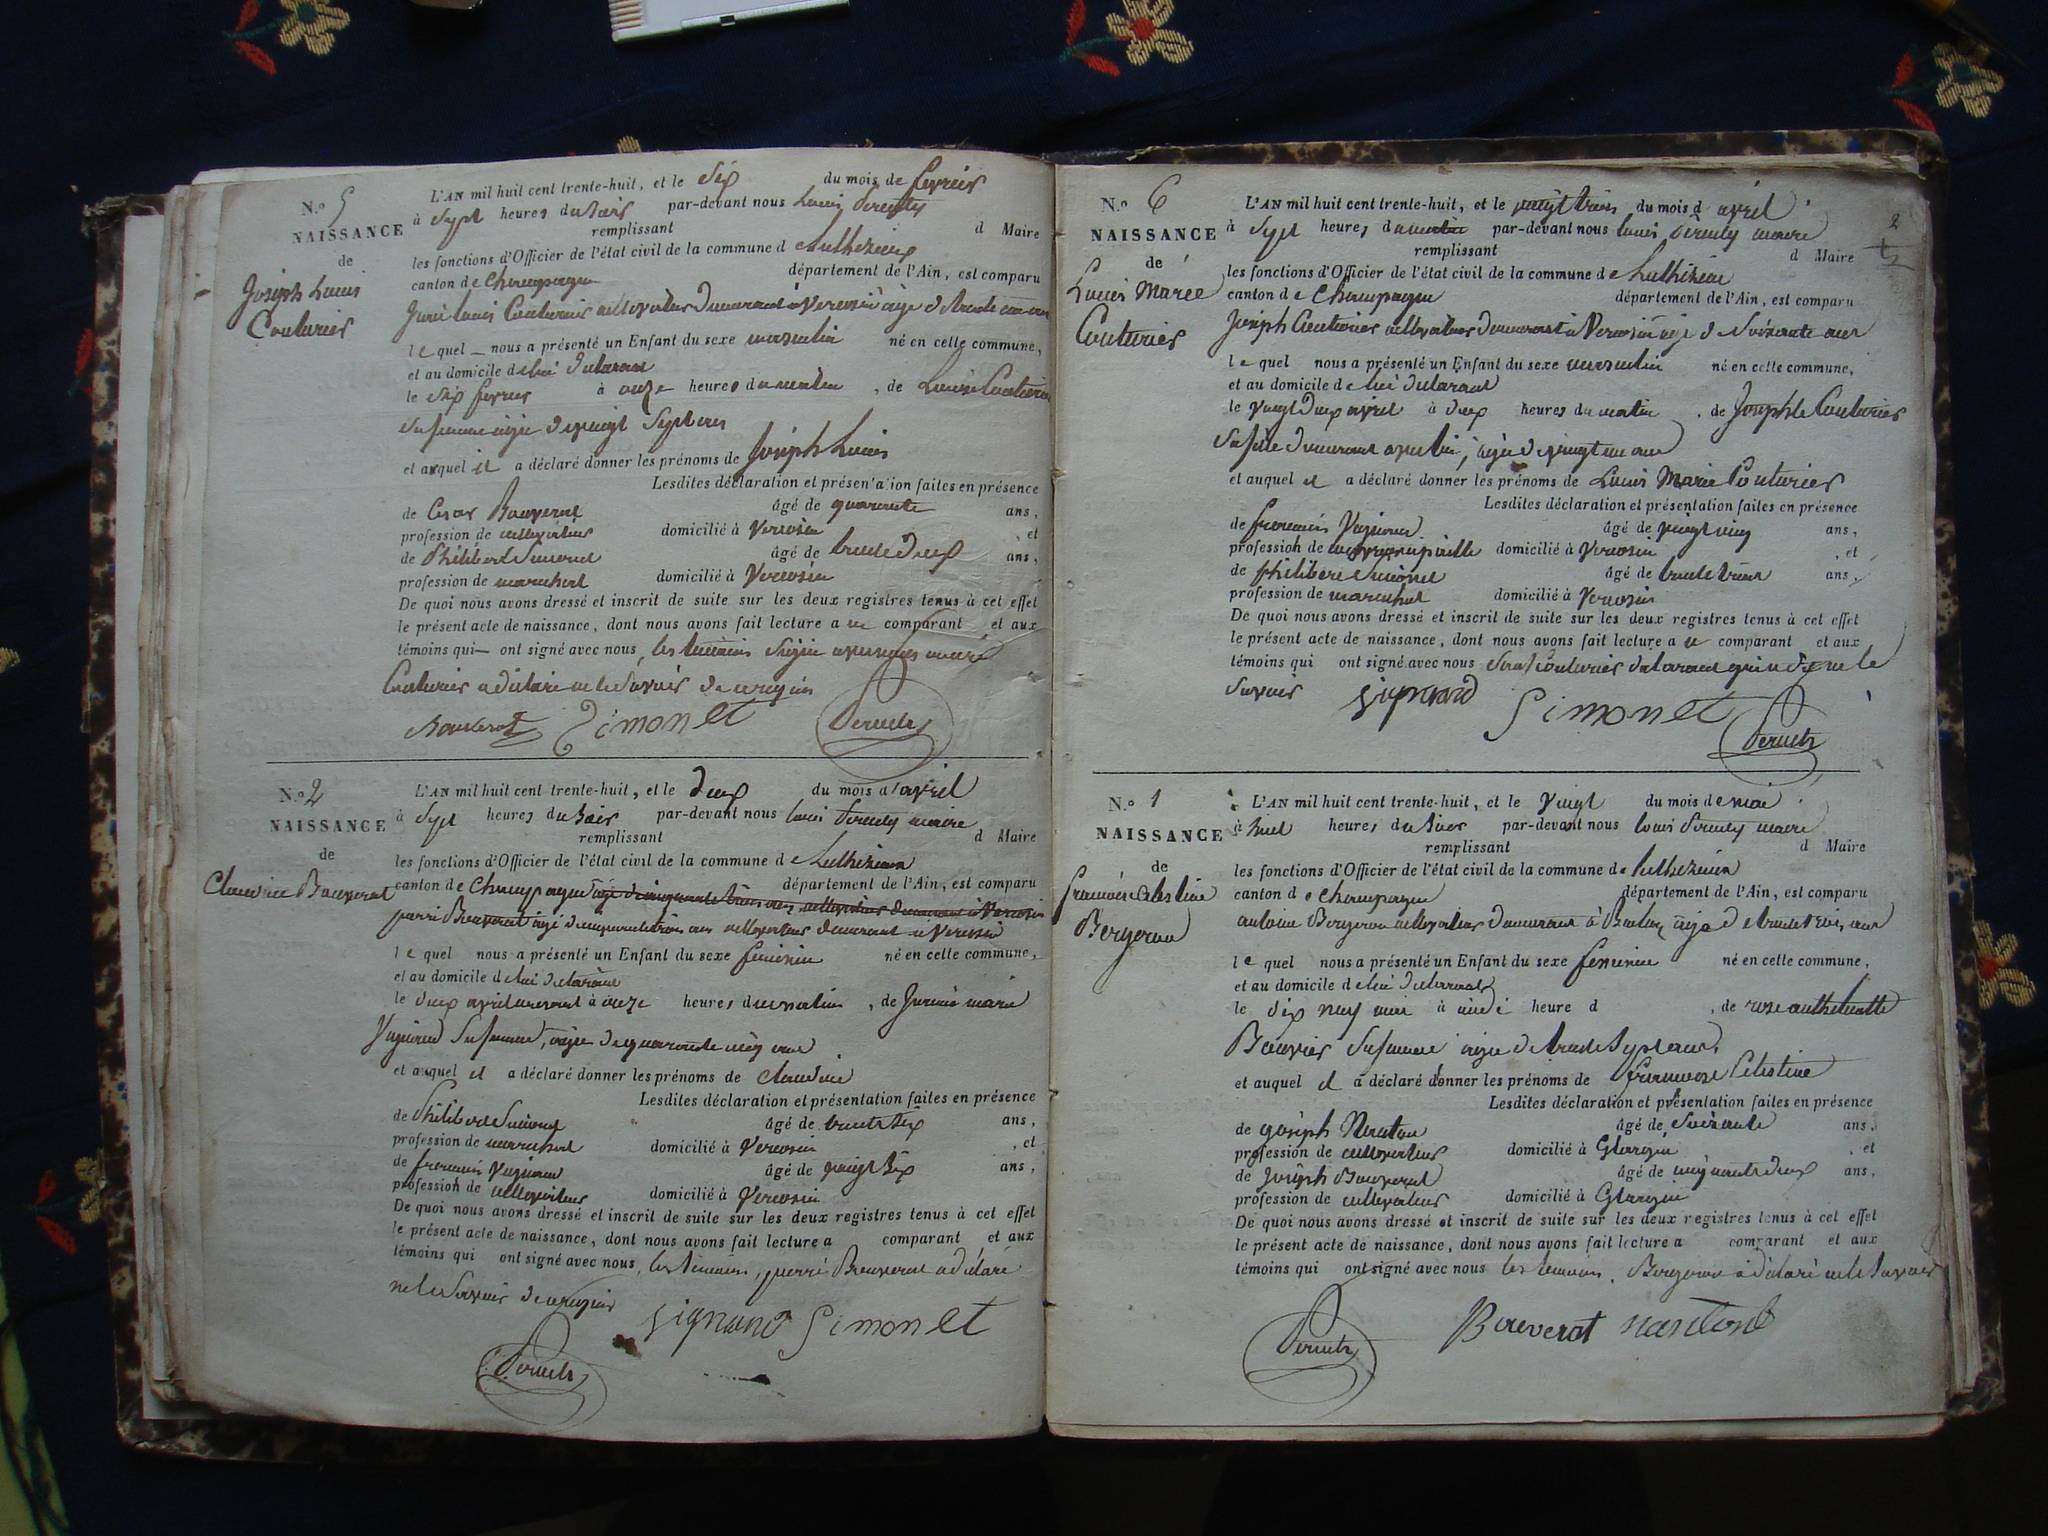 N.º 5
NAISSANCE
de
Joseph Louis
Couturier
L'AN mil huit cent trente-huit, et le six du mois de fevrier
à sept heures du soir par-devant nous Louis
remplissant d Maire
les fonctions d'Officier de l'état civil de la commune de
canton de Champagne département de l'Ain, est comparu
Louis Couturier cultivateur demeurant à Verosin âgé de trente
le quel nous a présenté un Enfant du sexe masculin né en cette commune,
et au domicile de lui déclarant
le six fevrier à onze heures du matin, de Couturier
sa femme âgée de vingt sept ans
et auquel il a déclaré donner les prénoms de Joseph Louis
Lesdites déclaration et présentation faites en présence
de Cesar Bouverot âgé de quarante ans,
profession de cultivateur domicilié à Verosin, et
de Philibert Simonet âgé de trente deux ans,
profession de marechal domicilié à Verosin
De quoi nous avons dressé et inscrit de suite sur les deux registres tenus à cet effet
le présent acte de naissance, dont nous avons fait lecture a comparant et aux
témoins qui ont signé avec nous, les temoins
Couturier a déclaré ne le savoir de ce requis
Bouverot Simonet
N.º 2
NAISSANCE
de
Claudine Bouverot
L'AN mil huit cent trente-huit, et le deux du mois d'avril
à sept heures du soir par-devant nous Louis maire
remplissant d Maire
les fonctions d'Officier de l'état civil de la commune de
canton de Champagne département de l'Ain, est comparu
pierre Bouverot âgé de cinquante trois ans cultivateur demeurant à Verosin
le quel nous a présenté un Enfant du sexe feminin né en cette commune,
et au domicile de lui déclarant
le deux avril à onze heures du matin, de marie
Vignand sa femme, âgée de quarante cinq ans
et auquel il a déclaré donner les prénoms de Claudine
Lesdites déclaration et présentation faites en présence
de Philibert Simonet âgé de trente six ans,
profession de marechal domicilié à Verosin, et
de francois Vignand âgé de vingt six ans,
profession de cultivateur domicilié à Verosin
De quoi nous avons dressé et inscrit de suite sur les deux registres tenus à cet effet
le présent acte de naissance, dont nous avons fait lecture a comparant et aux
témoins qui ont signé avec nous, les temoins, pierre Bouverot a déclaré
ne le savoir de ce requis
vignand Simonet
2
N.º 6
NAISSANCE
de
Louis Marie
Couturier
L'AN mil huit cent trente-huit, et le vingt trois du mois d avril
à sept heures du matin par-devant nous louis maire
remplissant d Maire
les fonctions d'Officier de l'état civil de la commune de
canton de Champagne département de l'Ain, est comparu
Joseph Couturier cultivateur demeurant à Verosin âgé de soixante ans
le quel nous a présenté un Enfant du sexe masculin né en cette commune,
et au domicile de lui déclarant
le vingt deux avril à deux heures du matin, de Couturier
sa fille demeurant avec lui, âgée de vingt un ans
et auquel il a déclaré donner les prénoms de Louis Marie Couturier
Lesdites déclaration et présentation faites en présence
de francois Vignand âgé de vingt cinq ans,
profession de domicilié à Verosin, et
de philibert Simonet âgé de trente ans,
profession de marechal domicilié à Verosin
De quoi nous avons dressé et inscrit de suite sur les deux registres tenus à cet effet
le présent acte de naissance, dont nous avons fait lecture a comparant et aux
témoins qui ont signé avec nous Couturier déclarant ne le
savoir vignand Simonet
N.º 1
NAISSANCE
de
Celestine
Bergeron
L'AN mil huit cent trente-huit, et le vingt du mois de mai
à huit heures du soir par-devant nous louis maire
remplissant d Maire
les fonctions d'Officier de l'état civil de la commune de
canton de Champagne département de l'Ain, est comparu
antoine Bergeron cultivateur demeurant à âgé de trente trois ans
le quel nous a présenté un Enfant du sexe feminin né en cette commune,
et au domicile de lui déclarant
le dix neuf mai à midi heure d, de rose
Bouvier sa femme âgée de trente sept ans,
et auquel il a déclaré donner les prénoms de francoise Celestine
Lesdites déclaration et présentation faites en présence
de joseph âgé de soixante ans,
profession de cultivateur domicilié à, et
de Joseph Bouverot âgé de cinquante deux ans,
profession de cultivateur domicilié à
De quoi nous avons dressé et inscrit de suite sur les deux registres tenus à cet effet
le présent acte de naissance, dont nous avons fait lecture a comparant et aux
témoins qui ont signé avec nous les temoins. Bergeron a déclaré ne le savoir
Bouverot